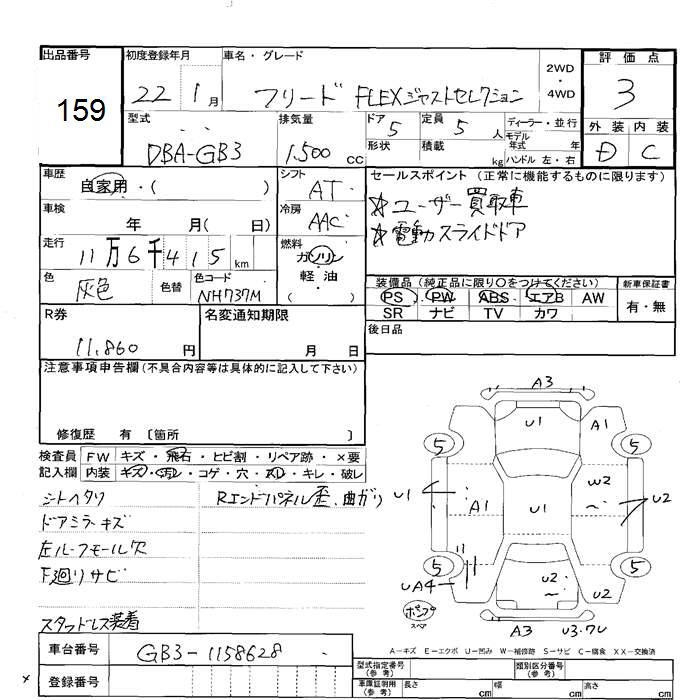 出品番号
159
初度登録年月
22 1月
車名・グレード
フリード FLEXジャストセレクション
2WD
・
4WD
評価点
3
外装 内装
D C
型式
DBA-GB3
排気量
1,500 cc
ドア 5
形状
定員 5 人
積載 kg
ディーラー・並行
モデル
年式 年
ハンドル 左・右
車歴
自家用・( )
シフト
AT
セールスポイント(正常に機能するものに限ります)
☆ユーザー買取車
☆電動スライドドア
車検
年 月( 日)
冷房
AAC
走行
11万6千415km
燃料
ガソリン
・
軽油
( )
色
灰色
色替
色コード
NH737M
装備品(純正品に限り〇をつけてください)
PS PW ABS エアB AW
SR ナビ TV カワ
新車保証書
有・無
R券
11,860 円
名変通知期限
月 日
後日品
注意事項申告欄(不具合内容等は具体的に記入して下さい)
修復歴 有 〔箇所 〕
検査員
記入欄
FW キズ・飛石・ヒビ割・リペア跡・×要
内装 キズ・汚レ・コゲ・穴・スレ・キレ・破レ
シートヘタリ
ドアミラーキズ
左ルーフモール欠
下廻りサビ
スタッドレス装着
Rエンドパネル歪、曲がり
A3
U1
A1
5
5
U1
A1
U1
W2
～
U2
5
5
UA4
U2
～
U2
テンプ
スペア
A3
U3.7U
A-キズ E-エクボ U-凹み W-補修跡 S-サビ C-腐食 XX-交換済
車台番号
GB3-1158628
登録番号
型式指定番号
(参考)
類別区分番号
(参考)
車庫証明用
(参考)
長さ cm
幅 cm
高さ cm